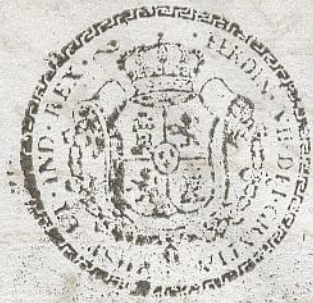 FERDIN · VII · DEI · GRATIA
HISP · ET · IND · REX ·